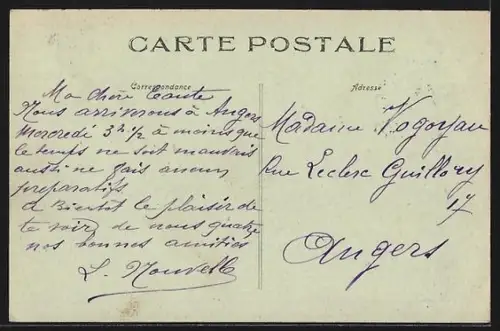 CARTE POSTALE
Correspondance
Ma chère Tante
Nous arriverons à Angers
Mercredi 3h 1/2 à moins que
le temps ne soit mauvais
aussi ne fais aucun
preparatifs
a Bientot le plaisir de
te voir de nous quatre
nos bonnes amitiés
L. Nouvelle
Adresse
Madame
Rue Leclerc Guillory
17
Angers